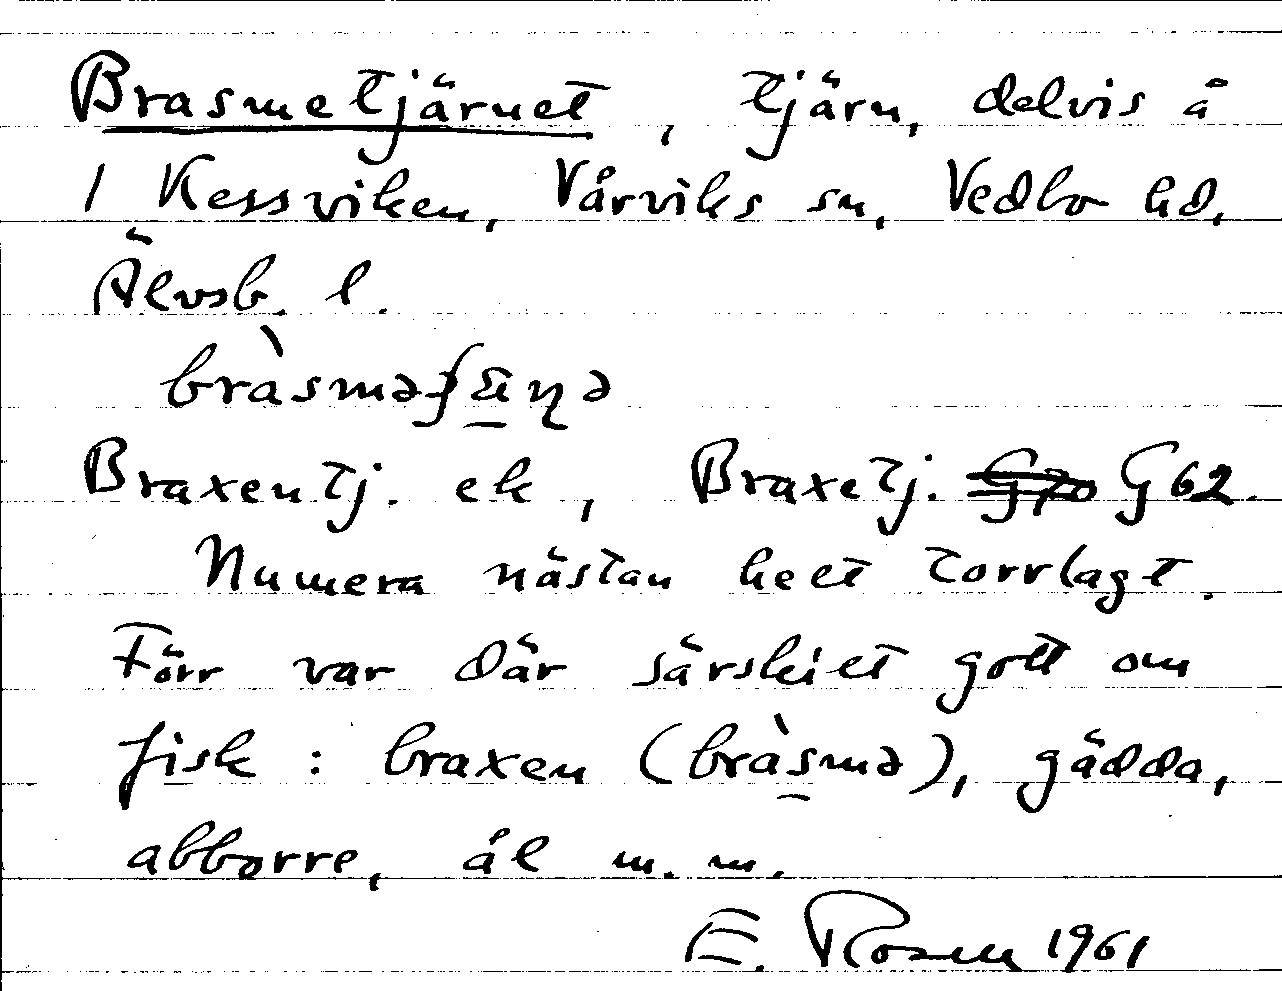 Brasmetjärnet, tjärn, delvis å
1 Kessviken, Vårviks sn, Vedbo hd,
Älvsb. l.
bràsməʃäɳə
Braxentj. ek, Braxetj. G62.
Numera nästan helt torrlagt.
Förr var där särskilt gott om
fisk : braxen (bràsmə), gädda,
abborre, ål m. m.
E. Rosen 1961